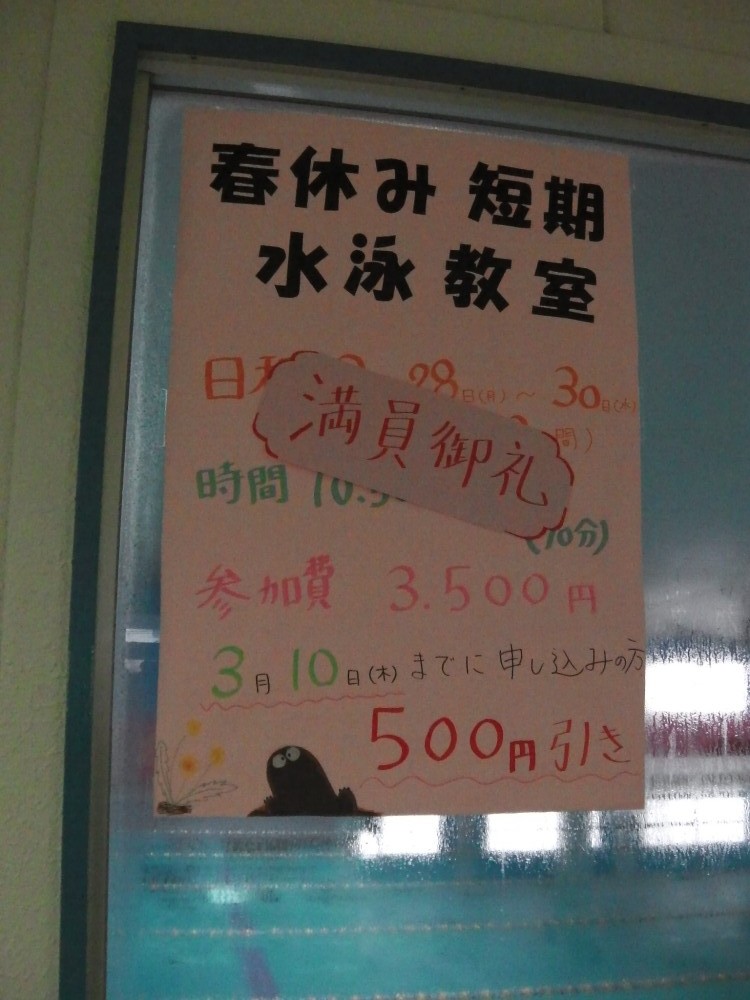 春休み 短期
水泳 教室
日 28日(月)〜30日(水)
間)
満員御礼
時間 10:3
(70分)
参加費 3.500円
3月10日(木)までに申し込みの方
500円引き